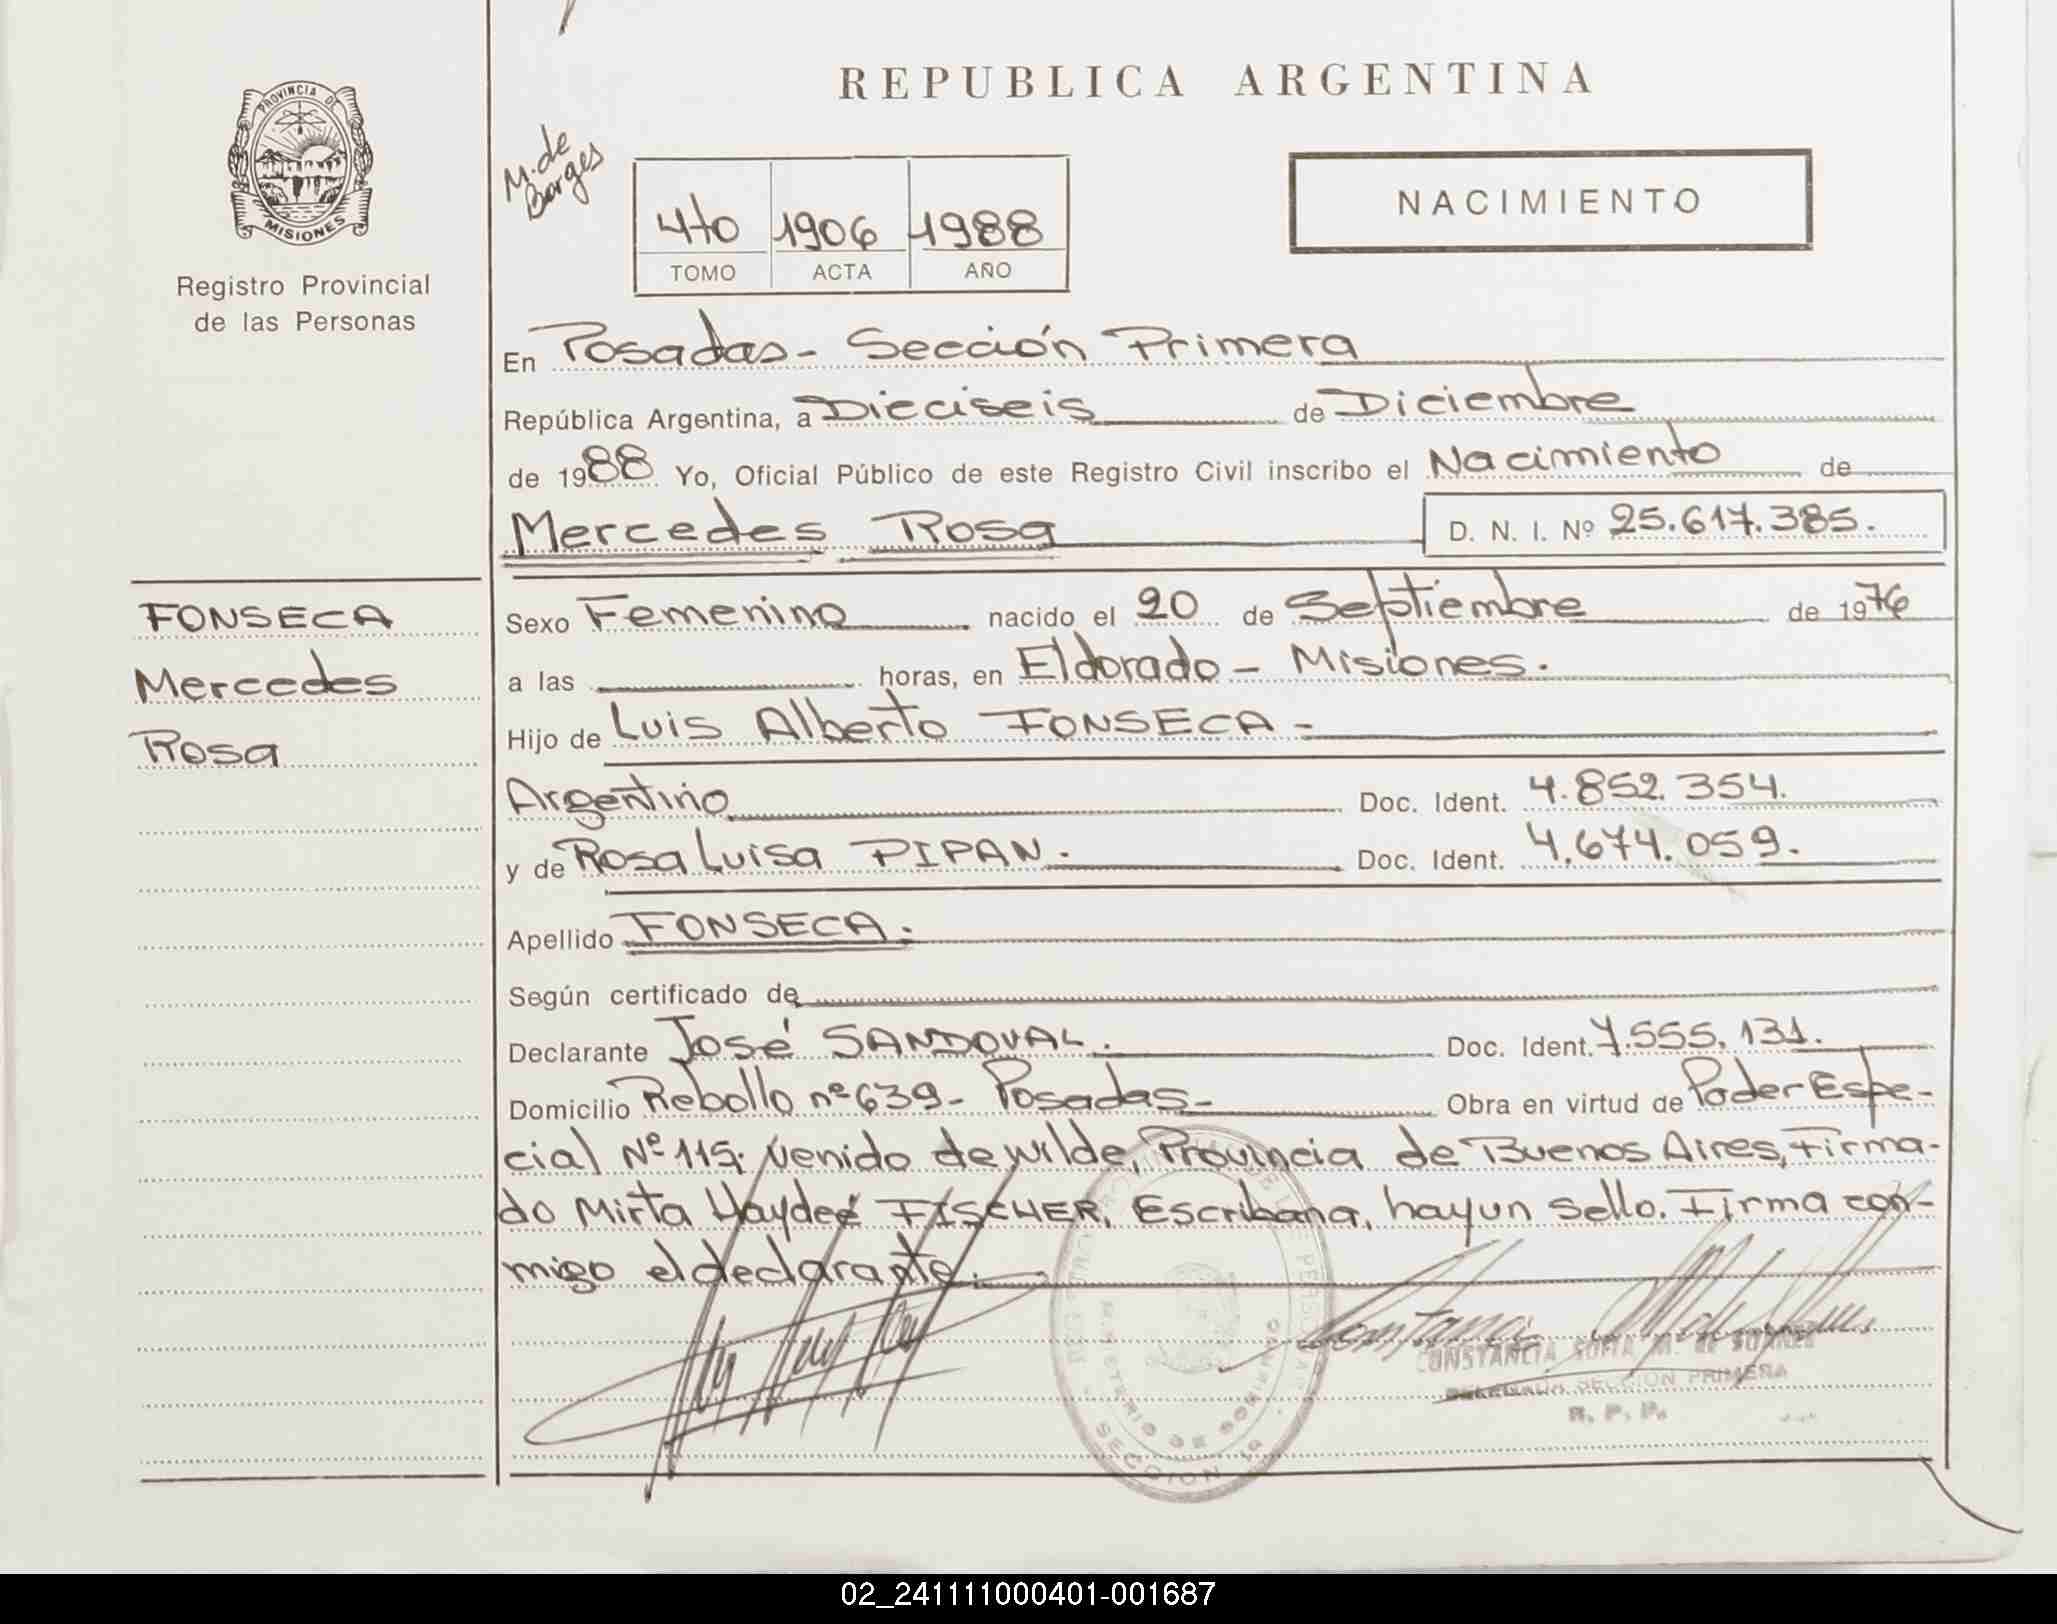 PROVINCIA DE
MISIONES
Registro Provincial
de las Personas
REPUBLICA ARGENTINA
M. de
Borges
4to 1906 1988
TOMO ACTA AÑO
NACIMIENTO
En Posadas - Sección Primera
República Argentina, a Dieciseis de Diciembre
de 1988 Yo, Oficial Público de este Registro Civil inscribo el Nacimiento de
Mercedes Rosa D. N. I. Nº 25.617.385.
FONSECA
Mercedes
Rosa
Sexo Femenino nacido el 20 de Septiembre de 1976
a las horas, en Eldorado - Misiones.
Hijo de Luis Alberto FONSECA -
Argentino Doc. Ident. 4.852.354.
y de Rosa Luisa PIPAN. Doc. Ident. 4.674.059.
Apellido FONSECA.
Según certificado de
Declarante José SANDOVAL. Doc. Ident. 7.555.131.
Domicilio Rebollo nº 639 - Posadas - Obra en virtud de Poder Espe-
cial Nº 115; venido de wilde, Provincia de Buenos Aires, Firma-
do Mirta Haydeé FISCHER, Escribana, hay un sello. Firma con-
migo el declarante.
CONSTANCIA SOFIA M. de SUAREZ
DELEGADA SECCION PRIMERA
R. P. P.
MINISTERIO DE GOBIERNO
SECCION 1a
02_241111000401-001687